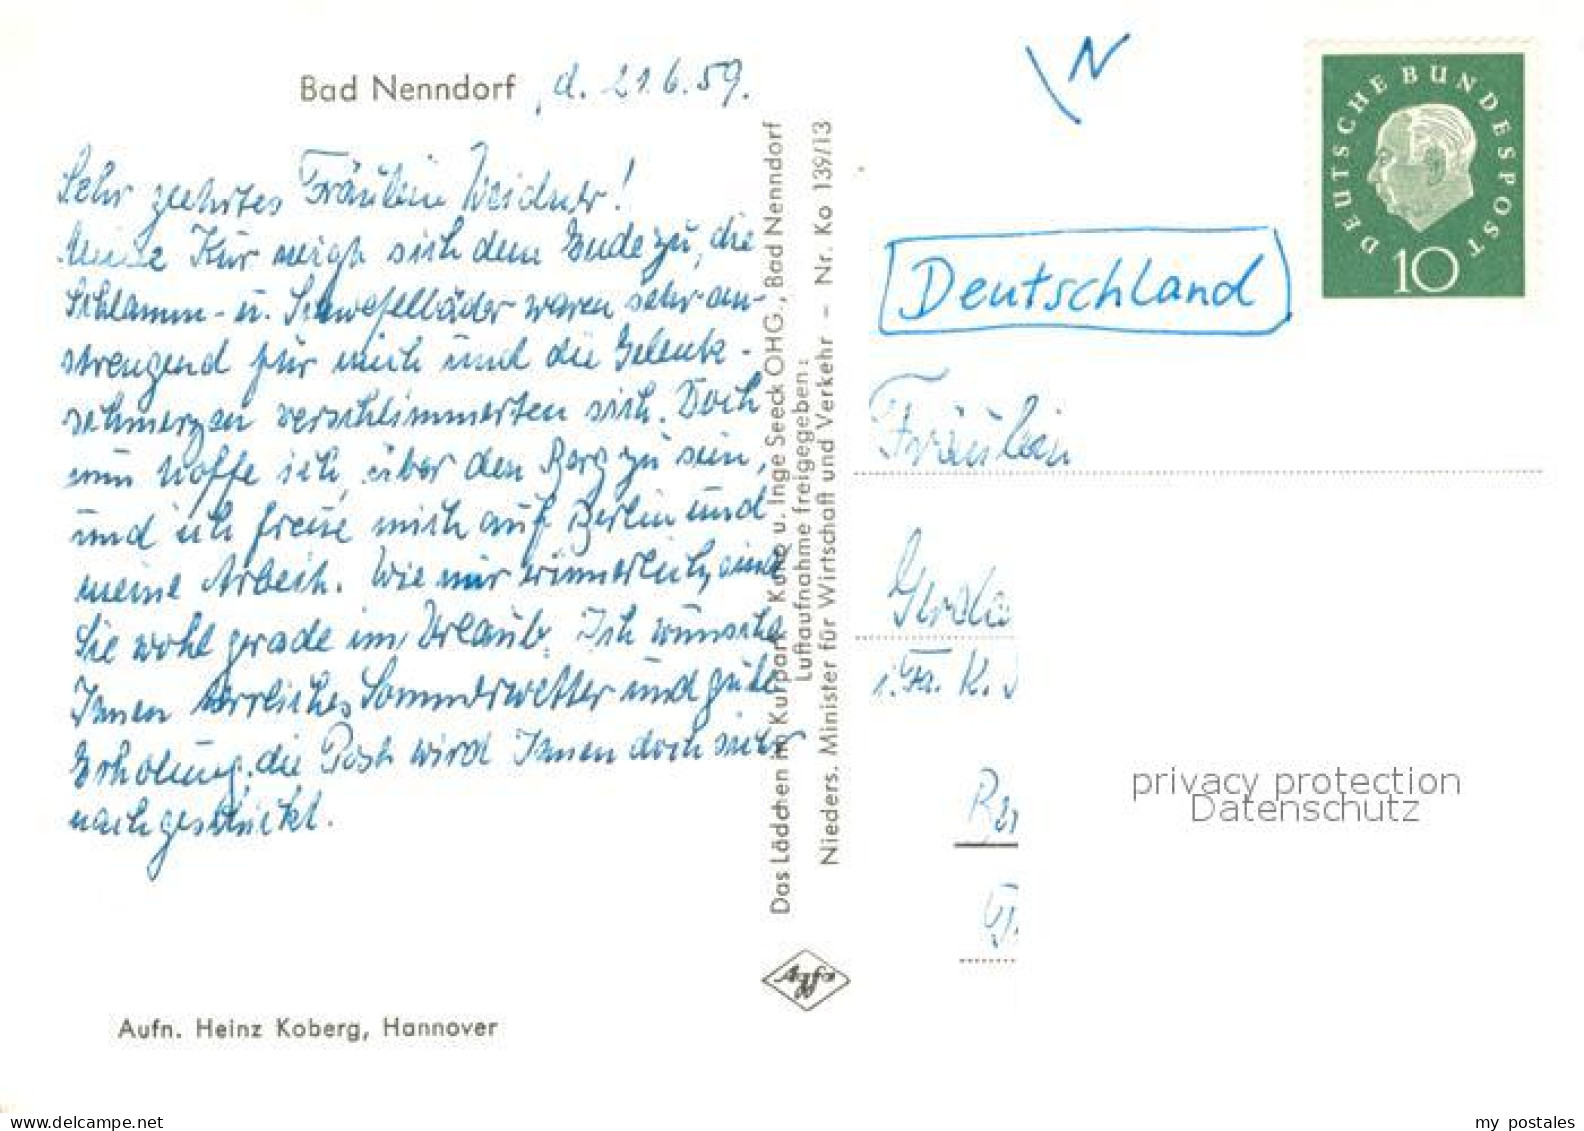 Bad Nenndorf, d. 21.6.59.
Sehr geehrtes Fräulein Weidner!
Meine Kur neigt sich dem Ende zu, die
Schlamm- u. Schwefelbäder waren sehr an-
strengend für mich und die Gelenk-
schmerzen verschlimmerten sich. Doch
nun hoffe ich, über den Berg zu sein,
und ich freue mich auf Berlin und
meine Arbeit. Wie mir erinnerlich, sind
Sie wohl gerade im Urlaub. Ich wünsche
Ihnen herrliches Sommerwetter und gute
Erholung, die Post wird Ihnen doch sicher
nachgeschickt.
Aufn. Heinz Koberg, Hannover
Das Lädchen im Kurpark Kuno u. Inge Seeck OHG., Bad Nenndorf
Luftaufnahme freigegeben:
Nieders. Minister für Wirtschaft und Verkehr – Nr. Ko 139/13
Agfa
N
DEUTSCHE BUNDESPOST
10
Deutschland
Fräulein
Gerda
i. Fa. K.
privacy protection
Datenschutz
www.delcampe.net
my postales